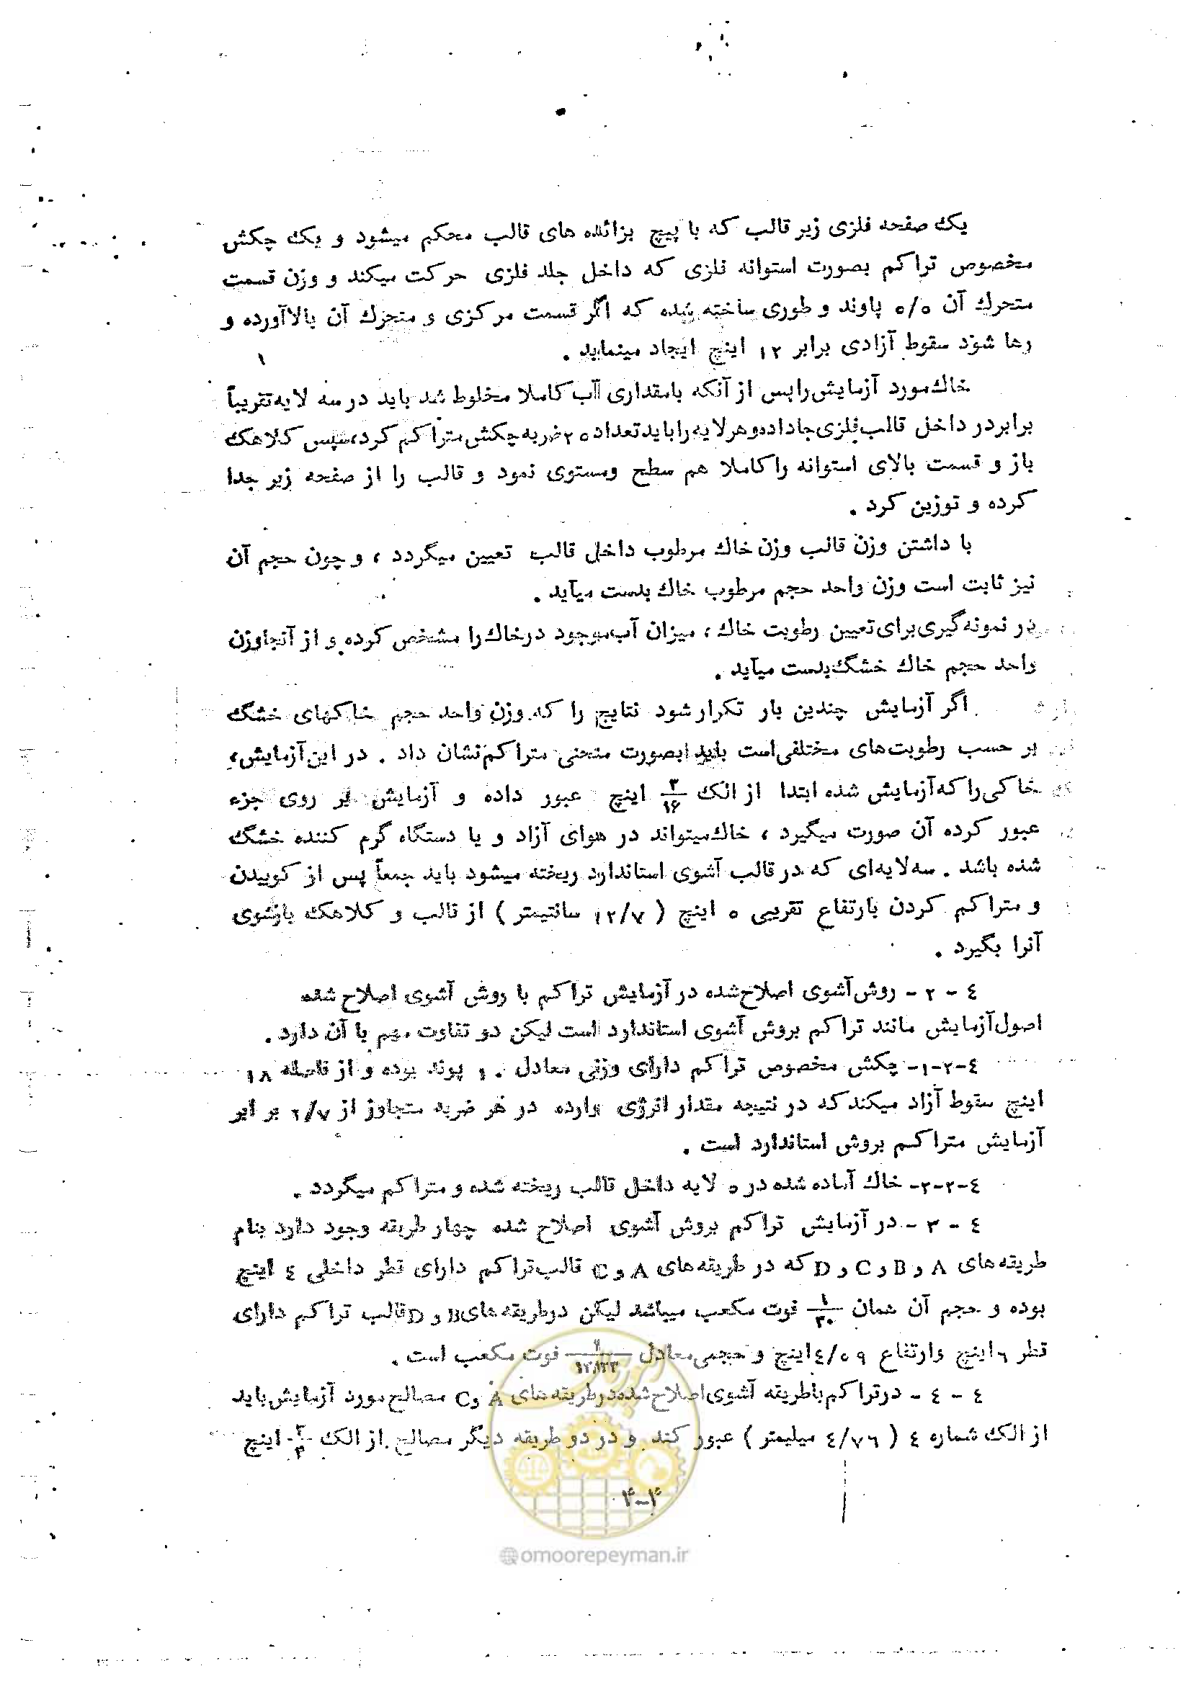 یک صفحه فلزی زیر قالب که با پیچ بزائده های قالب محکم میشود و یک چکش
مخصوص تراکم بصورت استوانه فلزی که داخل جلد فلزی حرکت میکند و وزن قسمت
متحرك آن ٥/٥ پاوند و طوری ساخته شده که اگر قسمت مرکزی و متحرك آن بالاآورده و
رها شود سقوط آزادی برابر ١٢ اینچ ایجاد مینماید .
خاك مورد آزمایش را پس از آنکه بامقداری آب کاملا مخلوط شد باید در سه لایه تقریباً
برابر در داخل قالب فلزی جا داده و هر لایه را باید تعداد ٢٥ ضربه چکش متراکم کرد، سپس کلاهک
باز و قسمت بالای استوانه را کاملا هم سطح ومستوی نمود و قالب را از صفحه زیر جدا
کرده و توزین کرد .
با داشتن وزن قالب وزن خاك مرطوب داخل قالب تعیین میگردد ، و چون حجم آن
نیز ثابت است وزن واحد حجم مرطوب خاك بدست میآید .
در نمونه گیری برای تعیین رطوبت خاك ، میزان آب موجود در خاك را مشخص کرده و از آنجا وزن
واحد حجم خاك خشگ بدست میآید .
اگر آزمایش چندین بار تکرار شود نتایج را که وزن واحد حجم خاکهای خشگ
بر حسب رطوبت های مختلفی است باید بصورت منحنی متراکم نشان داد . در این آزمایش،
خاکی را که آزمایش شده ابتدا از الک ٣/١٦ اینچ عبور داده و آزمایش بر روی جزء
عبور کرده آن صورت میگیرد ، خاك میتواند در هوای آزاد و یا دستگاه گرم کننده خشگ
شده باشد . سه لایه ای که در قالب آشوی استاندارد ریخته میشود باید جمعاً پس از کوبیدن
و متراکم کردن بارتفاع تقریبی ٥ اینچ ( ١٢/٧ سانتیمتر ) از قالب و کلاهک بازشوی
آنرا بگیرد .
٤ - ٢ - روش آشوی اصلاح شده در آزمایش تراکم با روش آشوی اصلاح شده
اصول آزمایش مانند تراکم بروش آشوی استاندارد است لیکن دو تفاوت مهم با آن دارد .
٤-٢-١- چکش مخصوص تراکم دارای وزنی معادل ١٠ پوند بوده و از فاصله ١٨
اینچ سقوط آزاد میکند که در نتیجه مقدار انرژی وارده در هر ضربه متجاوز از ٢/٧ بر ابر
آزمایش متراکم بروش استاندارد است .
٤-٢-٢- خاك آماده شده در ٥ لایه داخل قالب ریخته شده و متراکم میگردد .
٤ - ٣ - در آزمایش تراکم بروش آشوی اصلاح شده چهار طریقه وجود دارد بنام
طریقه های A و B و C و D که در طریقه های A و C قالب تراکم دارای قطر داخلی ٤ اینچ
بوده و حجم آن همان ١/٣٠ فوت مکعب میباشد لیکن درطریقه های B و D قالب تراکم دارای
قطر ٦ اینچ وارتفاع ٤/٥٩ اینچ و حجمی معادل فوت مکعب است .
٤ - ٤ - درتراکم باطریقه آشوی اصلاح شده درطریقه های A و C مصالح مورد آزمایش باید
از الک شماره ٤ ( ٤/٧٦ میلیمتر ) عبور کند و در دو طریقه دیگر مصالح از الک ٣/٤ اینچ
۴-۴
@omoorepeyman.ir